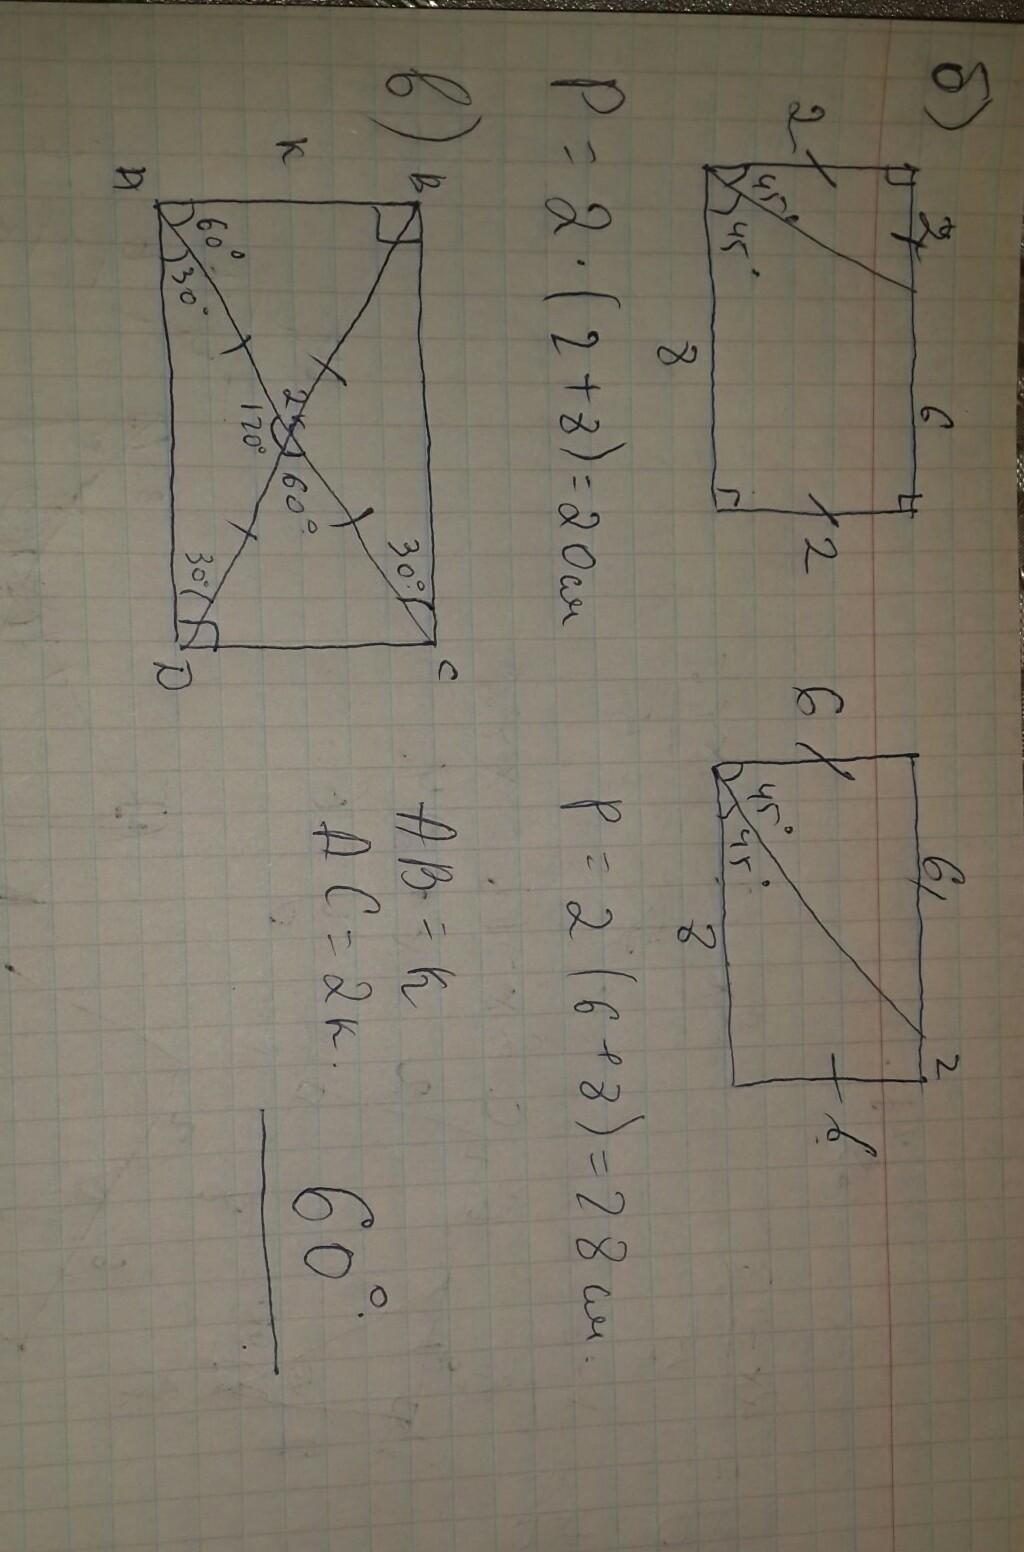 б)
2 2 6 45° 45° 8 2
6 6 2 45° 45° 8 6
P = 2 · (2 + 8) = 20 см
P = 2 (6 + 8) = 28 см.
в)
B C
K 60° 30° 2K 120° 60° 30° 30°
A D
AB = K
AC = 2K.
60°.